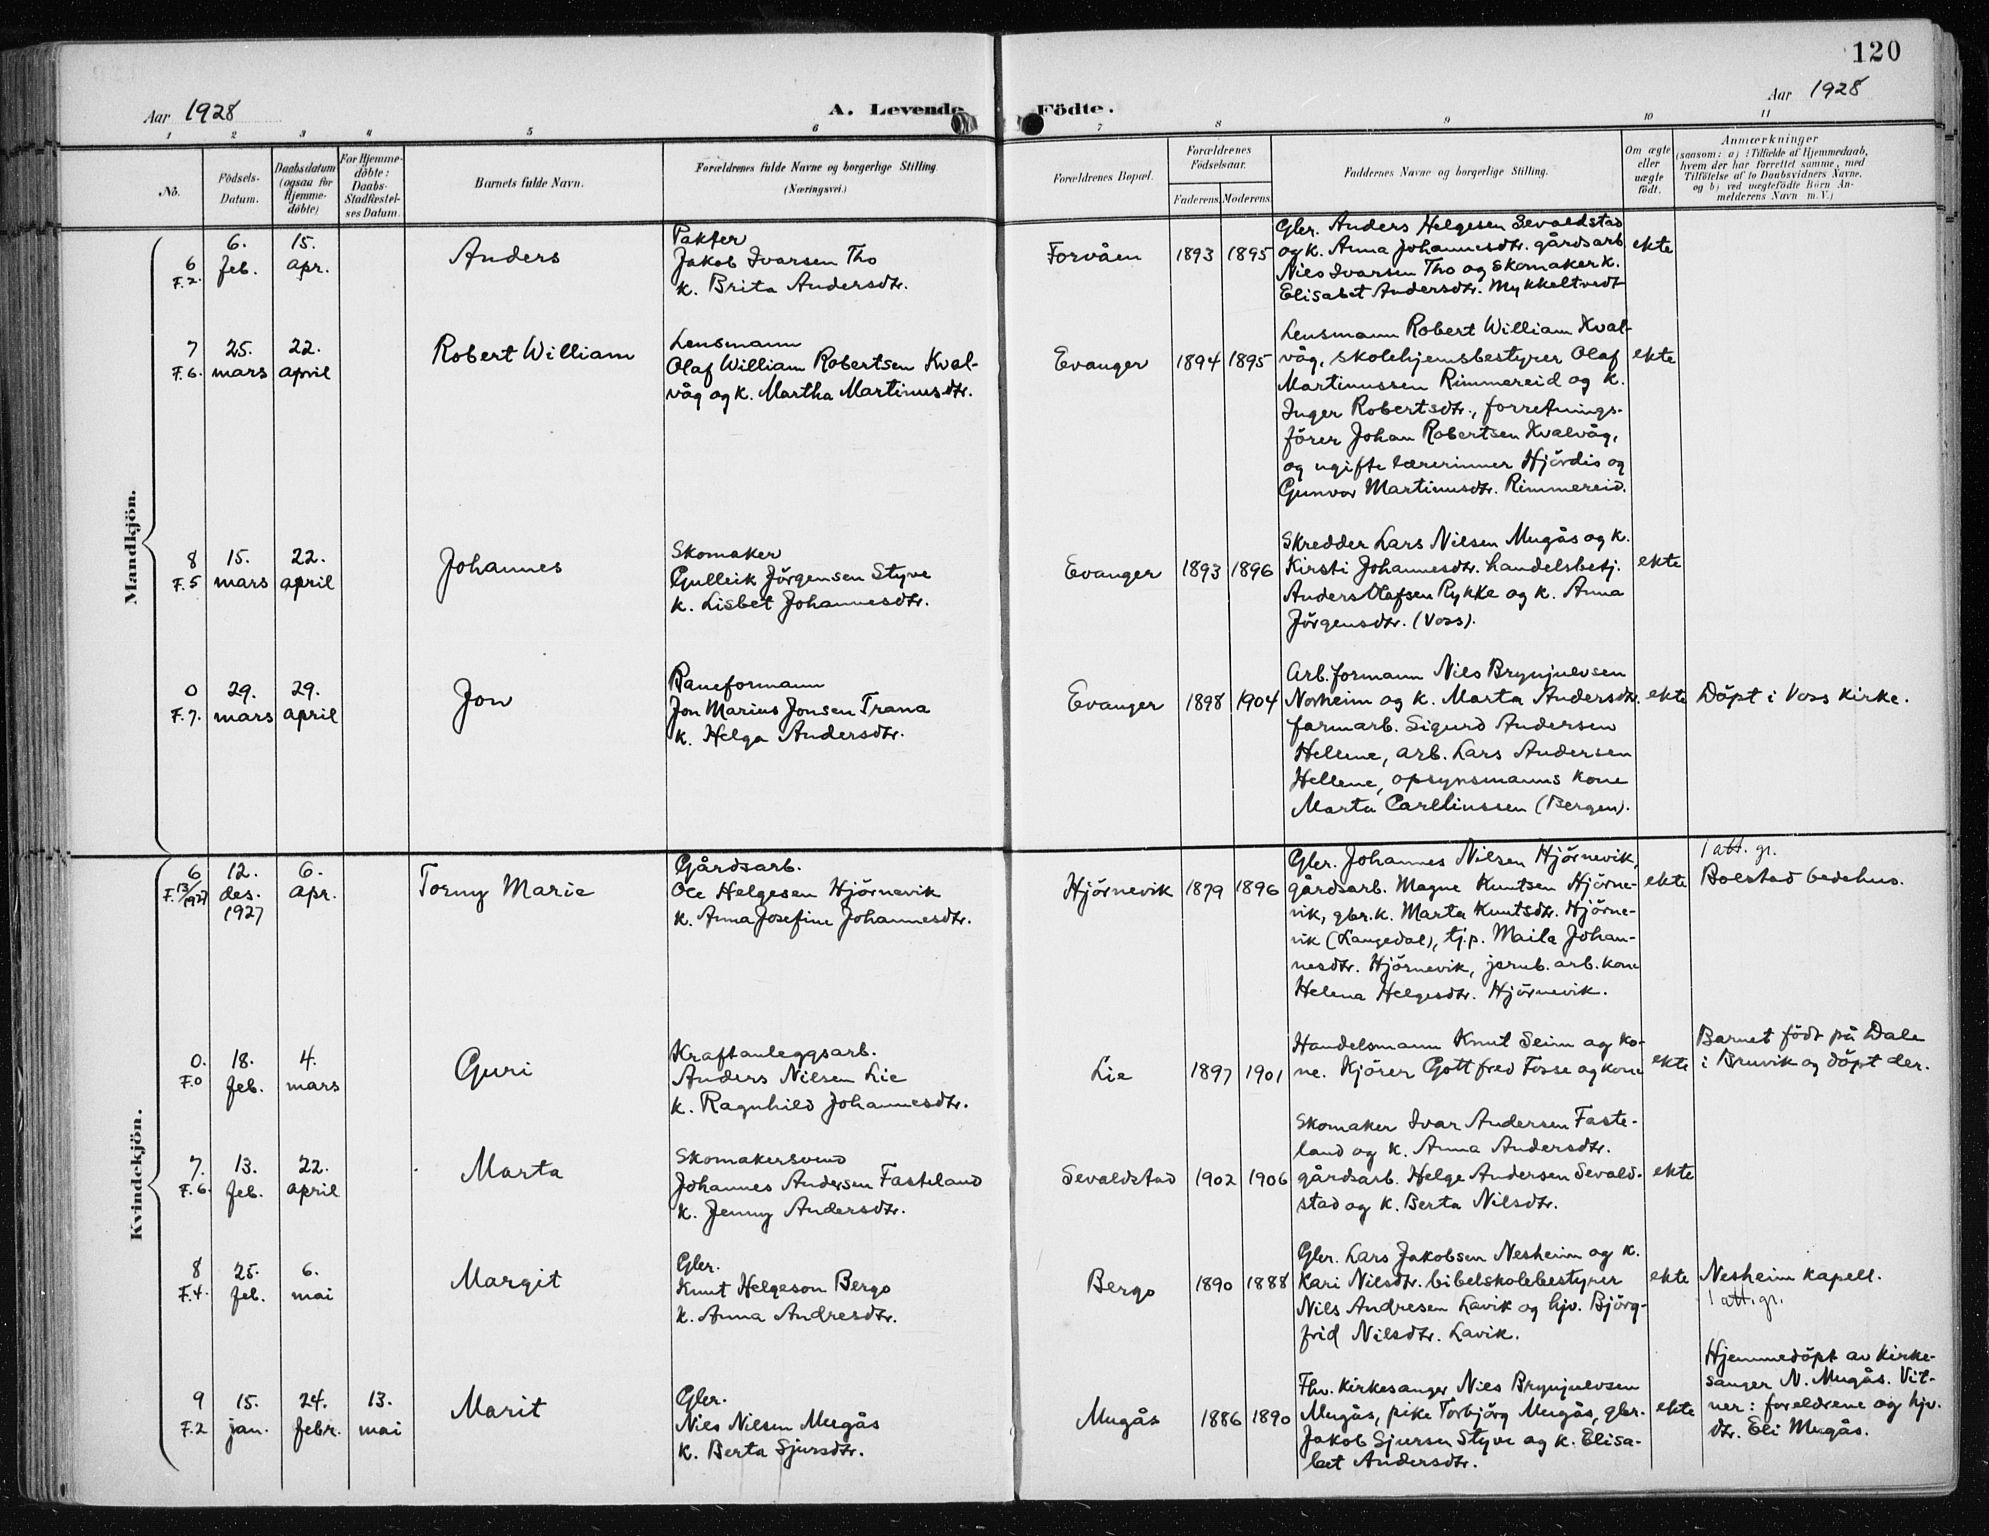 120
Aar 1928
A. Levende Födte.
Aar 1928
1 2 3 4 5 6 7 8 9 10 11
No.
Födsels-
Datum.
Daabsdatum
(ogsaa for
Hjemme-
döbte)
For Hjemme-
döbte:
Daabs-
Stadfæstel-
ses Datum.
Barnets fulde Navn.
Forældrenes fulde Navne og borgerlige Stilling.
(Næringsvei.)
Forældrenes Bopæl.
Forældrenes
Födselsaar.
Faderens. Moderens.
Faddernes Navne og borgerlige Stilling.
Om ægte
eller
uægte
födt.
Anmærkninger
(saasom: a) i Tilfælde af Hjemmedaab,
hvem der har forrettet samme, med
Tilföielse af to Daabsvidners Navne,
og b) ved uægtefödte Börn An-
melderens Navn m. V.)
Mandkjön.
6
F.2.
6.
feb.
15.
apr.
Anders
Pakter
Jakob Ivarsen Tho
k. Brita Andersdtr.
Forvåen
1893 1895
Gbr. Anders Helgesen Sevaldstad
og k. Anna Johannesdtr. gårdsarb
Nils Ivarsen Tho og skomaker k.
Elisabet Andersdtr. Mykkeltvedt
ekte
7
F.6.
25.
mars
22.
april
Robert William
Lensmann
Olaf William Robertsen Kval-
våg og k. Martha Martinusdtr.
Evanger
1894 1895
Lensmann Robert William Kval-
våg, skolehjemsbestyrer Olaf
Martinussen Rimmereid og k.
Inger Robertsdtr., forretnings-
förer Johan Robertsen Kvalvåg,
og ugifte lærerinner Hjördis og
Gunvor Martinusdtr. Rimmereid.
ekte
8
F.5
15.
mars
22.
april
Johannes
Skomaker
Gulleik Jörgensen Styve
k. Lisbet Johannesdtr.
Evanger
1893 1896
Skredder Lars Nilsen Mugås og k.
Kirsti Johannesdtr. handelsbetj.
Anders Olafsen Rykke og k. Anna
Jörgensdtr. (Voss).
ekte
0
F.7.
29.
mars
29.
april
Jon
Baneformann
Jon Marius Jonsen Trana
k. Helga Andersdtr.
Evanger
1898 1904
Arb.formann Nils Brynjulvsen
Norheim og k. Marta Andersdtr.
farmarb. Sigurd Andersen
Hellene, arb. Lars Andersen
Hellene, opsynsmanns kone
Marta Carlliussen (Bergen).
ekte
Döpt i Voss kirke.
Kvindekjön.
6
F.13/1927
12.
des.
1927
6.
apr.
Torny Marie
Gårdsarb.
Ole Helgesen Hjörnevik
k. Anna Josefine Johannesdtr.
Hjörnevik
1879 1896
Gbr. Johannes Nilsen Hjörnevik,
gårdsarb. Magne Knutsen Hjörne-
vik, gbr.k. Marta Knutsdtr. Hjörne-
vik (Langedal), tj.p. Maila Johan-
nesdtr. Hjörnevik, jernb.arb.kone
Helena Helgesdtr. Hjörnevik.
ekte
1 att. gr.
Bolstad bedehus.
0.
F.0
18.
feb.
4.
mars
Guri
Kraftanleggsarb.
Anders Nilsen Lie
k. Ragnhild Johannesdtr.
Lie
1897 1901
Handelsmann Knut Seim og ko-
ne. Kjörer Gottfred Fosse og kone
ekte
Barnet födt på Dale
i Bruvik og döpt der.
7.
F.6.
13.
feb.
22.
april
Marta
Skomakersvend
Johannes Andersen Fasteland
k. Jenny Andersdtr.
Sevaldstad
1902 1906
Skomaker Ivar Andersen Faste-
land og k. Anna Andersdtr.
gårdsarb. Helge Andersen Sevald-
stad og k. Berta Nilsdtr.
ekte
8
F.4.
25.
feb.
6.
mai
Margit
Gbr.
Knut Helgeson Bergo
k. Anna Andresdtr.
Bergo
1890 1888
Gbr. Lars Jakobsen Nesheim og k.
Kari Nilsdtr. bibelskolebestyrer
Nils Andresen Lavik og hjv. Björg-
frid Nilsdtr. Lavik.
ekte
Nesheim kapell.
1 att. gr.
9
F.2
15.
jan.
24.
febr.
13.
mai
Marit
Gbr.
Nils Nilsen Mugås
k. Berta Sjursdtr.
Mugås
1886 1890
Fhv. kirkesanger Nils Brynjulvsen
Mugås, pike Torbjörg Mugås, gbr.
Jakob Sjursen Styve og k. Elisa-
bet Andersdtr.
ekte
Hjemmedöpt av kirke-
sanger N. Mugås. Vit-
ner: foreldrene og hjv.
dtr. Eli Mugås.